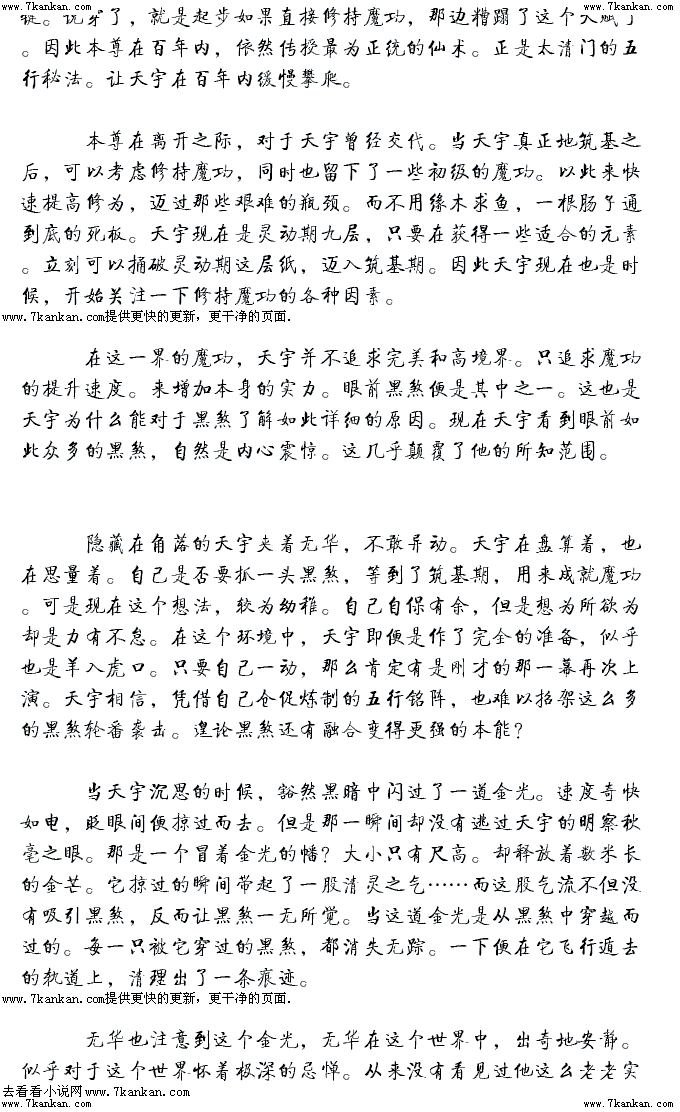 www.7kankan.com www.7kankan.com www.7kankan.com
键。说穿了，就是起步如果直接修持魔功，那边糟蹋了这个天赋了
。因此本尊在百年内，依然传授最为正统的仙术。正是太清门的五
行秘法。让天宇在百年内缓慢攀爬。
本尊在离开之际，对于天宇曾经交代。当天宇真正地筑基之
后，可以考虑修持魔功，同时也留下了一些初级的魔功。以此来快
速提高修为，迈过那些艰难的瓶颈。而不用缘木求鱼，一根肠子通
到底的死板。天宇现在是灵动期九层，只要在获得一些适合的元素
。立刻可以捅破灵动期这层纸，迈入筑基期。因此天宇现在也是时
候，开始关注一下修持魔功的各种因素。
www.7kankan.com提供更快的更新，更干净的页面.
在这一界的魔功，天宇并不追求完美和高境界。只追求魔功
的提升速度。来增加本身的实力。眼前黑煞便是其中之一。这也是
天宇为什么能对于黑煞了解如此详细的原因。现在天宇看到眼前如
此众多的黑煞，自然是内心震惊。这几乎颠覆了他的所知范围。
隐藏在角落的天宇夹着无华，不敢异动。天宇在盘算着，也
在思量着。自己是否要抓一头黑煞，等到了筑基期，用来成就魔功
。可是现在这个想法，较为幼稚。自己自保有余，但是想为所欲为
却是力有不怠。在这个环境中，天宇即便是作了完全的准备，似乎
也是羊入虎口。只要自己一动，那么肯定有是刚才的那一幕再次上
演。天宇相信，凭借自己仓促炼制的五行铭阵，也难以招架这么多
的黑煞轮番袭击。遑论黑煞还有融合变得更强的本能？
当天宇沉思的时候，豁然黑暗中闪过了一道金光。速度奇快
如电，眨眼间便掠过而去。但是那一瞬间却没有逃过天宇的明察秋
毫之眼。那是一个冒着金光的幡？大小只有尺高。却释放着数米长
的金芒。它掠过的瞬间带起了一股清灵之气……而这股气流不但没
有吸引黑煞，反而让黑煞一无所觉。当这道金光是从黑煞中穿越而
过的。每一只被它穿过的黑煞，都消失无踪。一下便在它飞行遁去
的轨道上，清理出了一条痕迹。
www.7kankan.com提供更快的更新，更干净的页面.
无华也注意到这个金光，无华在这个世界中，出奇地安静。
似乎对于这个世界怀着极深的忌惮。从来没有看见过他这么老老实
去看看小说网www.7kankan.com
www.7kankan.com www.7kankan.com www.7kankan.com